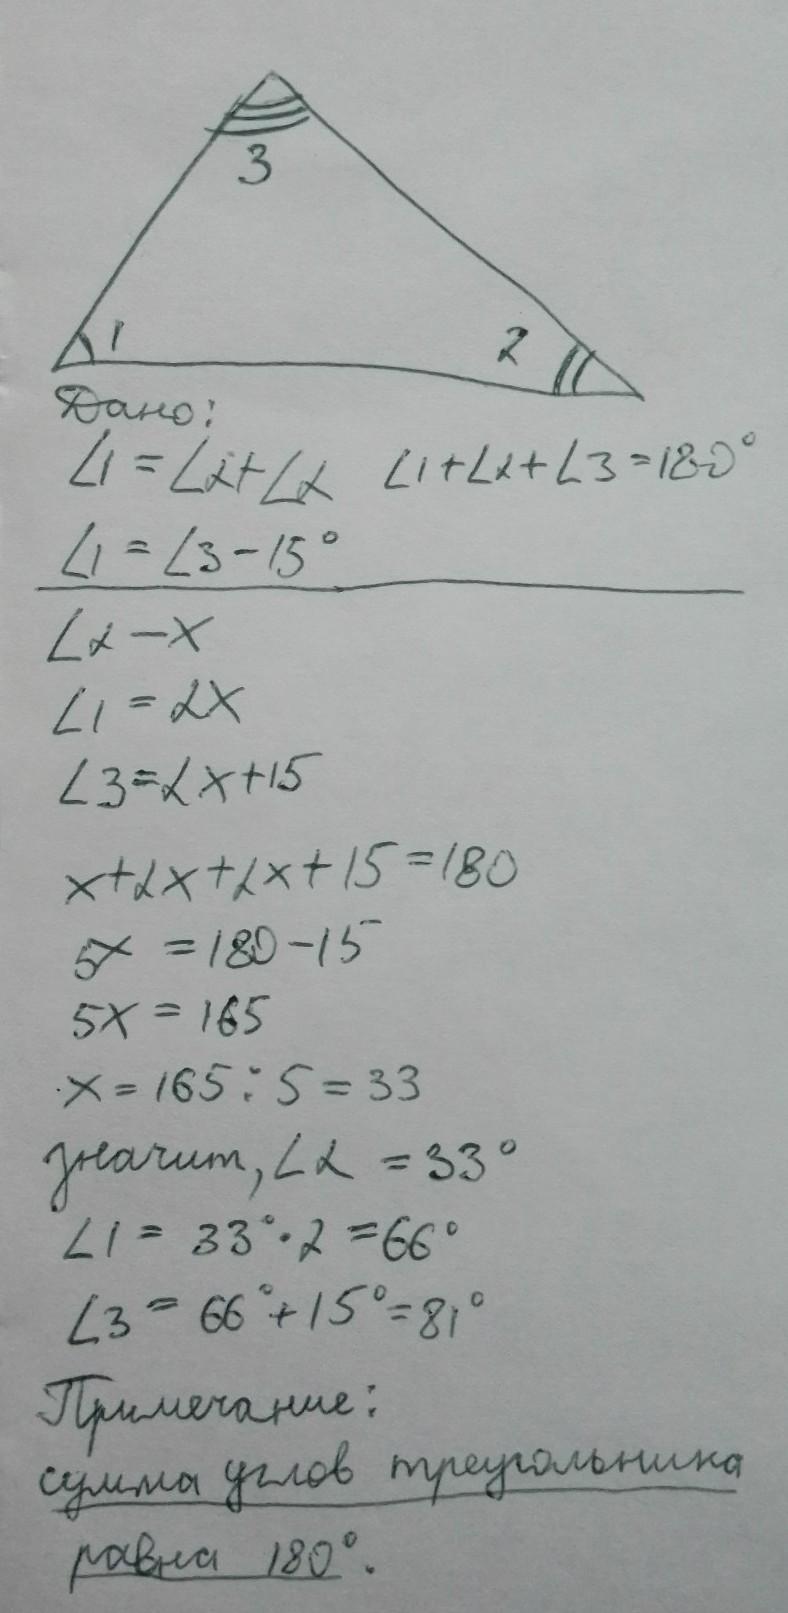 3
1
2
Дано:
∠1 = ∠2+∠2 ∠1+∠2+∠3=180°
∠1 = ∠3-15°
∠2 - x
∠1 = 2x
∠3=2x+15
x+2x+2x+15=180
5x = 180-15
5x = 165
x = 165:5 = 33
значит, ∠2 = 33°
∠1 = 33°·2 = 66°
∠3 = 66°+15°=81°
Примечание:
сумма углов треугольника
равна 180°.